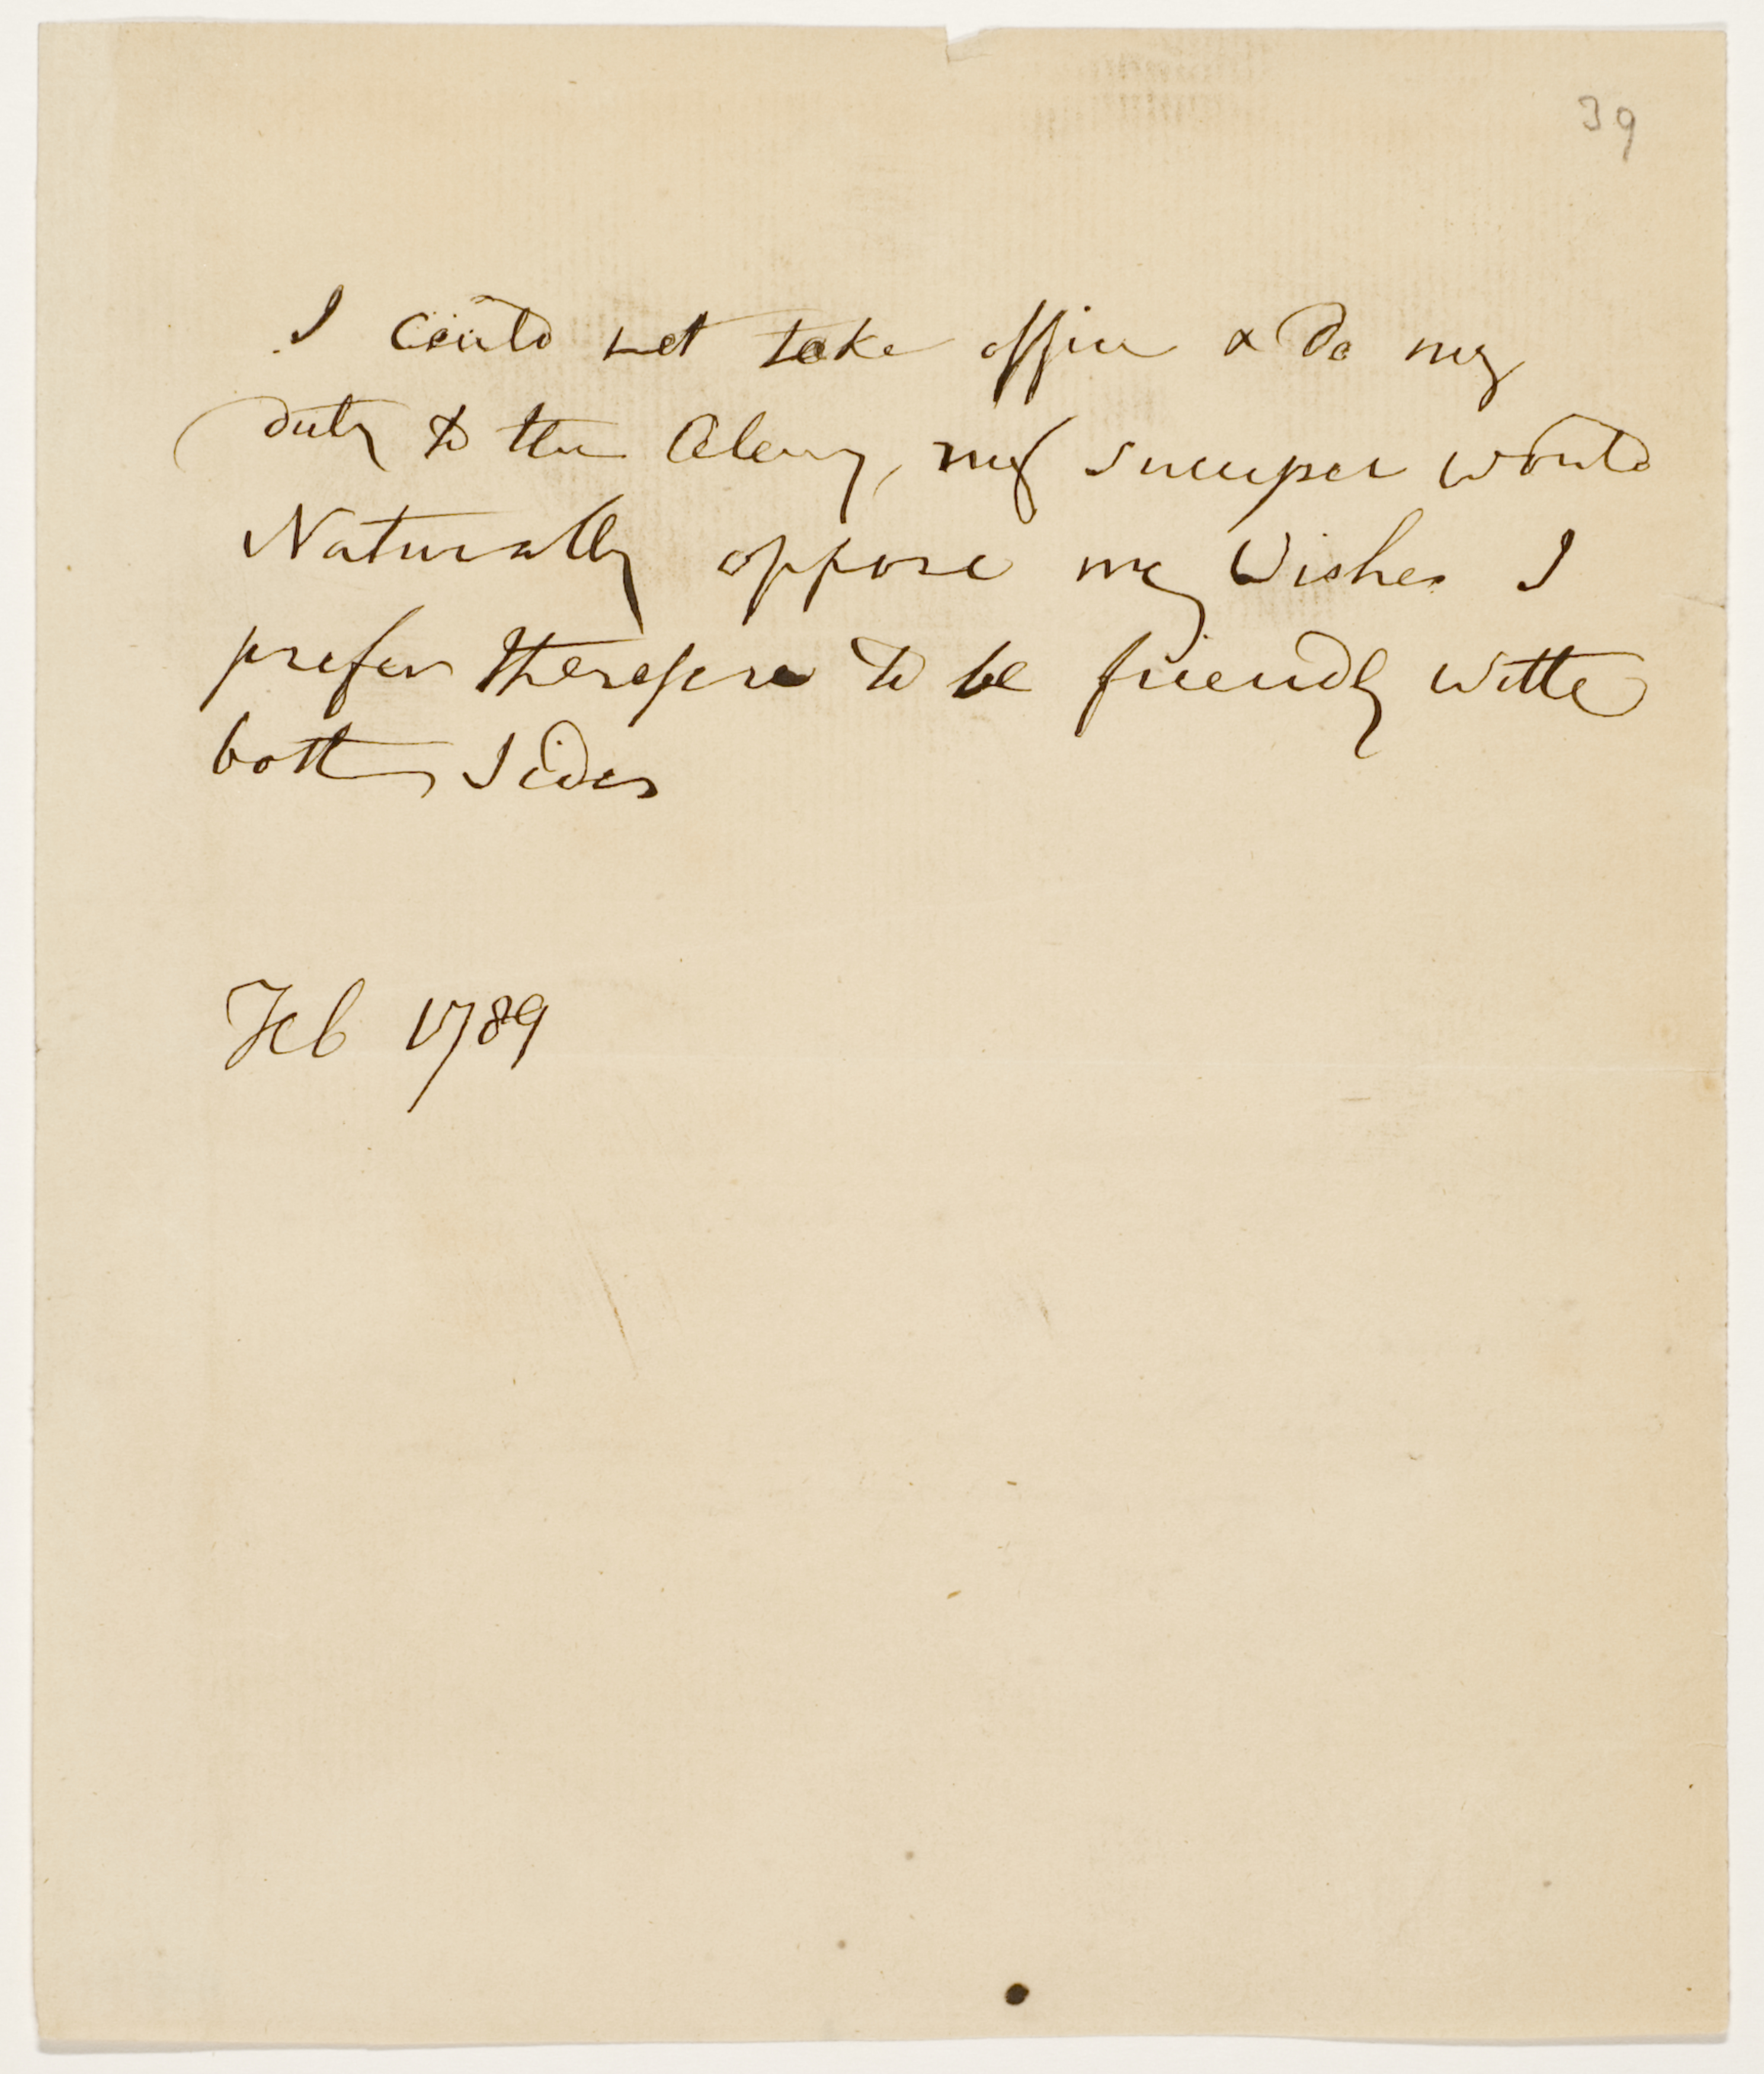 39
I could not take office & do my
duty to the Colony, my successor would
Naturally oppose my Wishes I
prefer therefore to be friendly with
both sides
Feb 1789